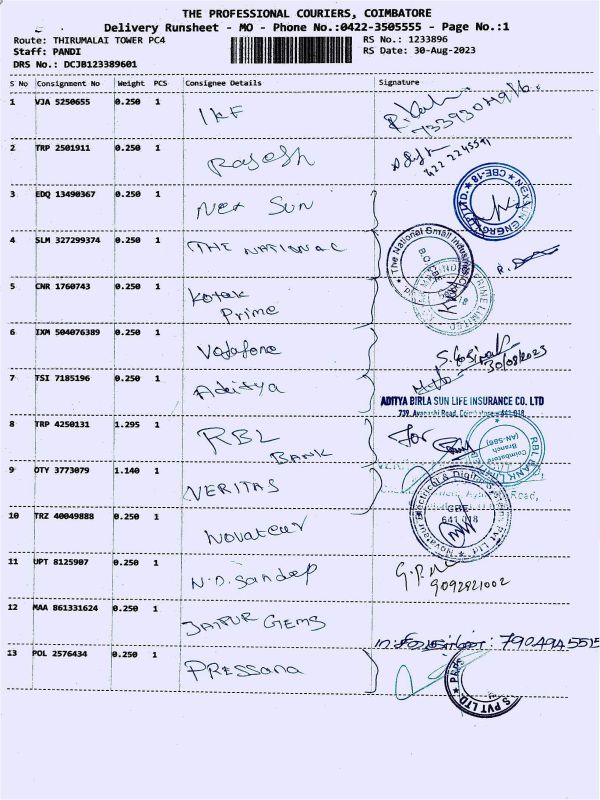 THE PROFESSIONAL COURIERS, COIMBATORE
Delivery Runsheet - MO - Phone No.:0422-3505555 - Page No.:1
Route: THIRUMALAI TOWER PC4 RS No.: 1233896
Staff: PANDI RS Date: 30-Aug-2023
DRS No.: DCJB123389601
S No Consignment No Weight PCS Consignee Details Signature
1 VJA 5250655 0.250 1 IKF
2 TRP 2501911 0.250 1 Rajesh
3 EDQ 13490367 0.250 1 Nex Sun
CBE-18
NEX SUN ENERGY (P) LTD.
4 SLM 327299374 0.250 1 THE NATIONAL
The National Small Industries
5 CNR 1760743 0.250 1 Kotak
Prime
PRIME LIMITED
6 IXM 504076389 0.250 1 Vodafone
30/08/2023
7 TSI 7185196 0.250 1 Aditya
ADITYA BIRLA SUN LIFE INSURANCE CO. LTD
739, Avanashi Road, Coimbatore - 641 018
8 TRP 4250131 1.295 1 RBL
BANK
for
RBL BANK LIMITED
Coimbatore
Branch
(AN-586)
9 OTY 3773079 1.140 1 VERITAS
10 TRZ 40049888 0.250 1 Novateur
Novateur Electrical & Digital Systems Pvt Ltd
CBE
641 018
11 UPT 8125907 0.250 1 N.D. Sandep
9092821002
12 MAA 861331624 0.250 1 JAIPUR GEMS
13 POL 2576434 0.250 1 PRESSana
S PVT LTD